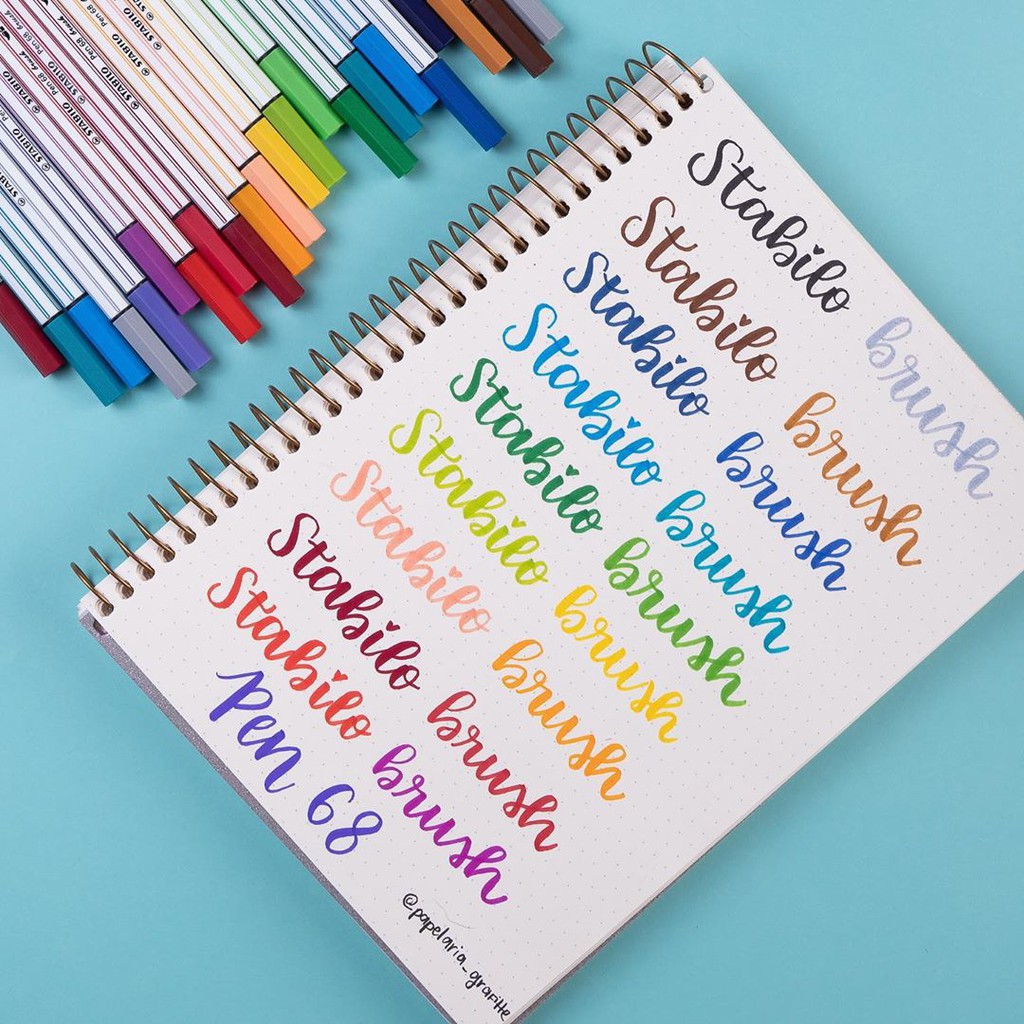 STABILO Pen 68 brush
STABILO Pen 68
STABILO Pen 68
STABILO
STABILO
STABILO
STABILO
STABILO
Stabilo brush
Stabilo brush
Stabilo brush
Stabilo brush
Stabilo brush
Stabilo brush
Stabilo brush
Stabilo brush
Stabilo brush
Pen 68
@papelaria_grafitte